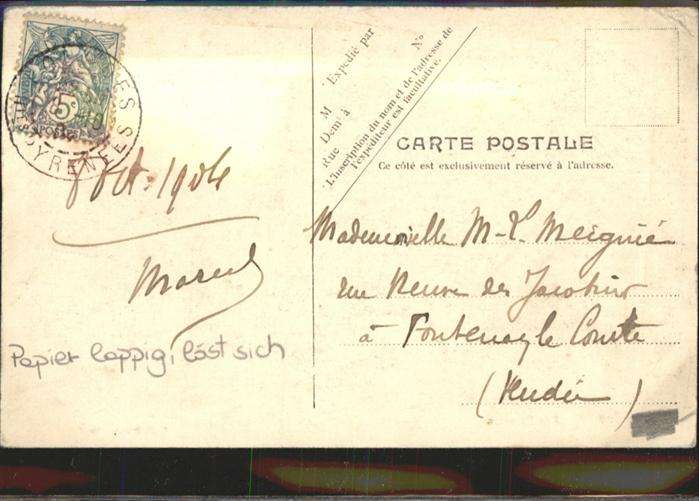 5c
POSTES
PYRENEES
8 Oct. 1904
Marcel
Papier lappig, löst sich
M
Rue
Dem.t à
Expédié par
N°
L'inscription du nom et de l'adresse de
l'expéditeur est facultative.
CARTE POSTALE
Ce côté est exclusivement réservé à l'adresse.
Mademoiselle M-L. Meignié
rue Neuve des Jacobins
à Fontenay le Comte
(Vendée)